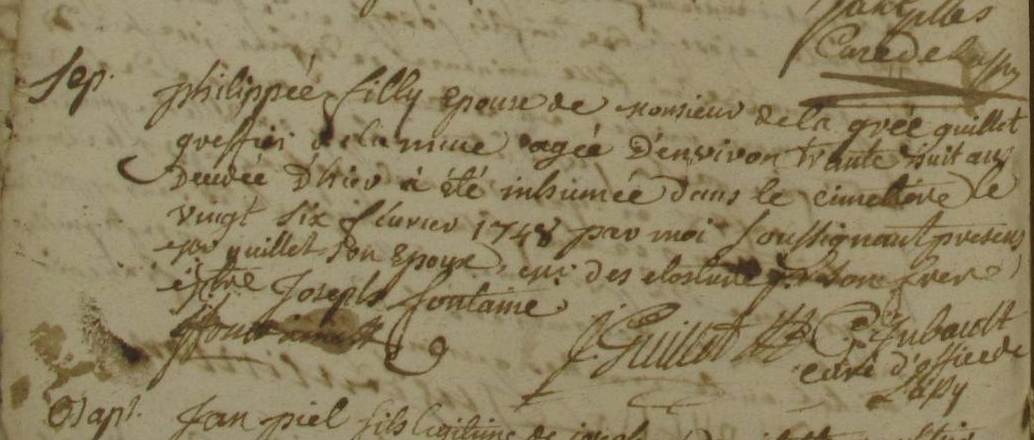 Gilles
Curé de
Sep.
philippée filly epouse de monsieur de la grée guillet
greffier agée d'environ trante huit ans
Deucdée d'hier à été inhumée dans le cimetiere le
vingt six fevrier 1748 par moi soussignant presens
guillet son epoux, des son frere
Joseph fontaine
J. Guillot C. Gubault
curé d'office de
Lépy
Bapt.
Jan piel fils legitime de